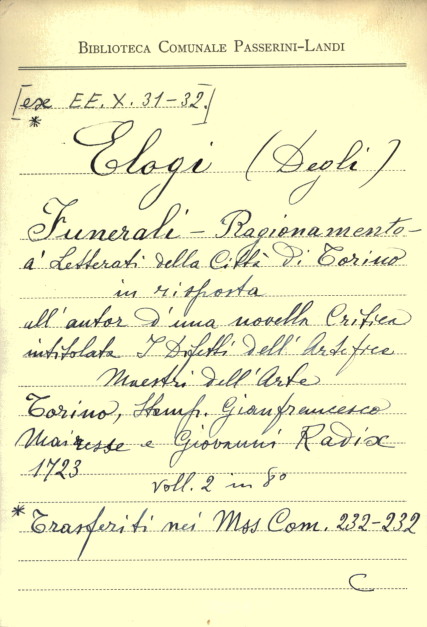 BIBLIOTECA COMUNALE PASSERINI-LANDI
[ex EE. X. 31-32.]
*
Elogi (Degli)
Funerali - Ragionamento -
a' Letterati della Città di Torino
in risposta
all'autor d'una novella Critica
intitolata I Difetti dell'Artefice
Maestri dell'Arte
Torino, Stamp. Gianfrancesco
Mairesse e Giovanni Radix
1723
voll. 2 in 8º
* Trasferiti nei Mss Com. 232-232
C